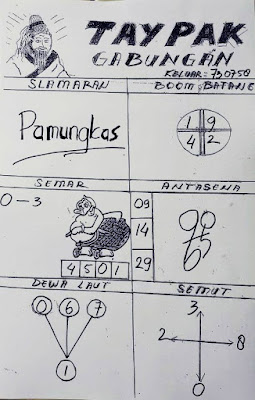 TAYPAK
GABUNGAN
KELUAR: 730758
SLAMARAN
BOOM BATANG
Pamungkas
1 9
4 2
SEMAR
ANTASENA
0 - 3
09
14
29
4 5 0 1
DEWA LAUT
SEMUT
0 6 7
1
3
2 8
0